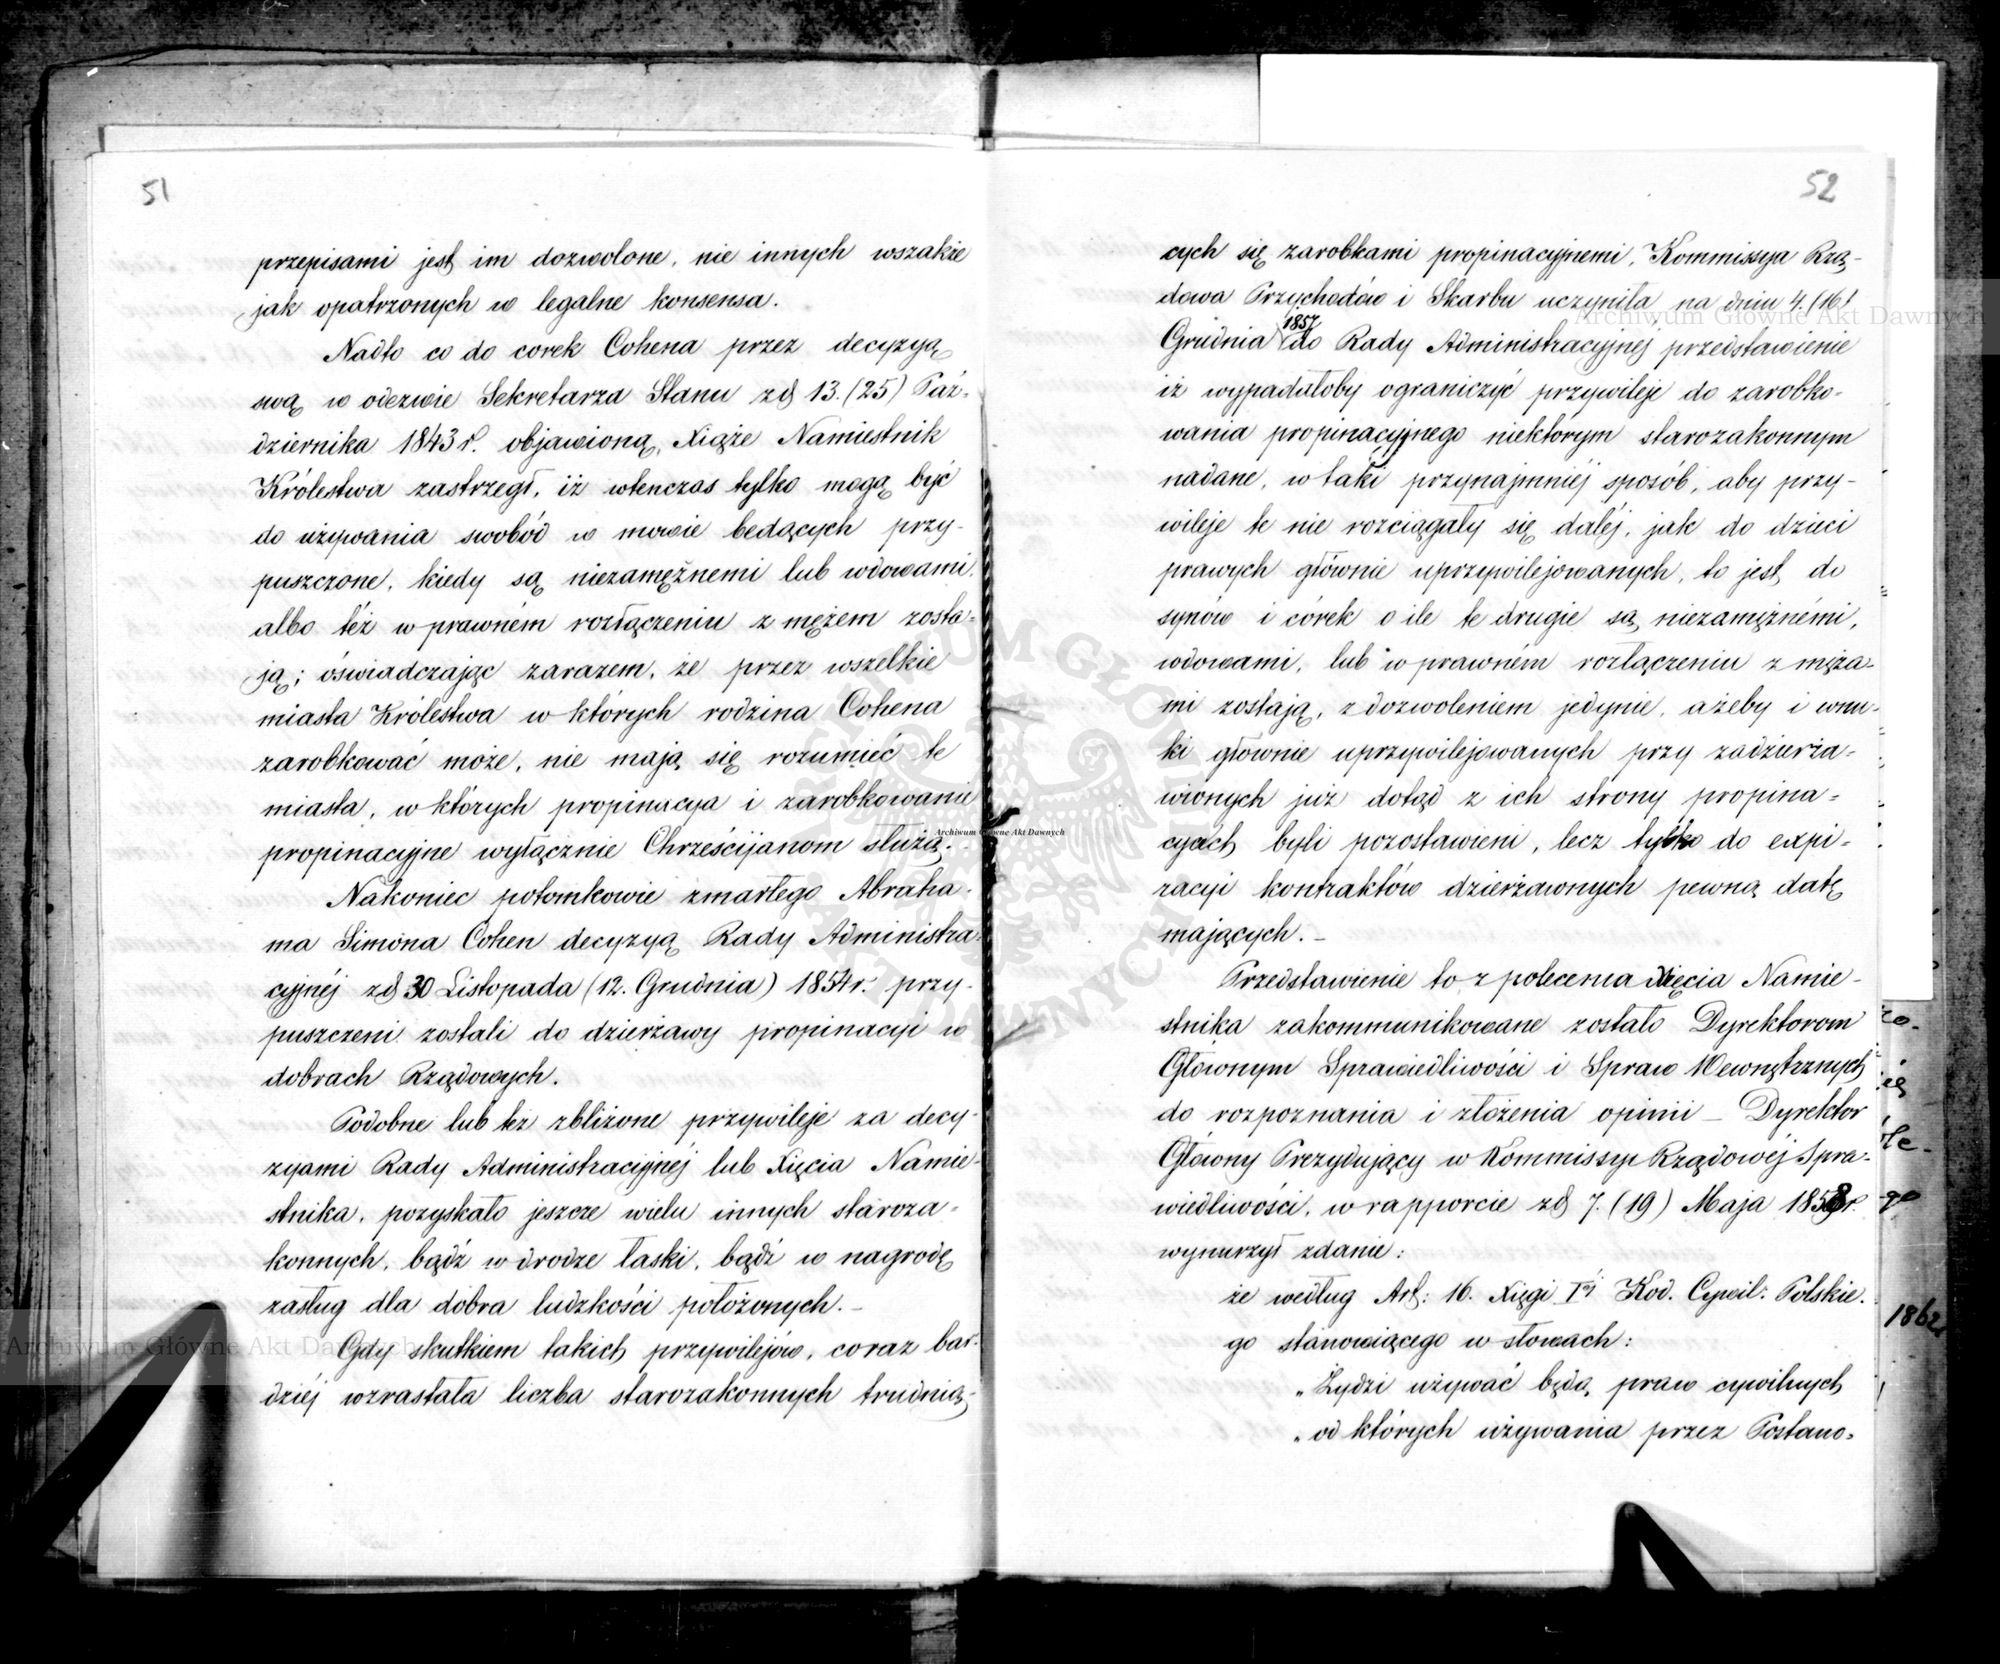 51
przepisami jest im dozwolone, nie innych wszakże
jak opatrzonych w legalne konsensa.
Nadto co do corek Cohena przez decyzyą
swą w odezwie Sekretarza Stanu zd 13. (25) Paź-
dziernika 1843 r. objawioną, Xiąże Namiestnik
Królestwa zastrzegł, iż wtenczas tylko mogą być
do używania swobód w mowie bedących przy-
puszczone, kiedy są niezamężnemi lub wdowami,
albo téż w prawném rozłączeniu z mężem zosta-
ją; oświadczając zarazem, że przez wszelkie
miasta Królestwa w których rodzina Cohena
zarobkować może, nie mają się rozumieć te
miasta, w których propinacya i zarobkowanie
propinacyjne wyłącznie Chrześcijanom służą.
Nakoniec potomkowie zmarłego Abraha-
ma Simona Cohen decyzyą Rady Administra-
cyjnéj zd 30 Listopada (12. Grudnia) 1854 r. przy-
puszczeni zostali do dzierżawy propinacyi w
dobrach Rządowych.
Podobne lub też zbliżone przywileje za decy-
zyami Rady Administracyjnéj lub Xięcia Namie-
stnika, pozyskało jeszcze wielu innych staroza-
konnych, bądź w drodze łaski, bądź w nagrodę
zasług dla dobra ludzkości położonych. _
Gdy skutkiem takich przywilejów, coraz bar-
dziéj wzrastała liczba starozakonnych trudnią-
52
cych się zarobkami propinacyjnemi, Kommissya Rzą-
dowa Przychodów i Skarbu uczyniła na dniu 4. (16)
1857
Grudnia do Rady Administracyjnéj przedstawienie
iż wypadałoby ograniczyć przywileje do zarobko-
wania propinacyjnego niektorym starozakonnym
nadane, w taki przynajmniéj sposób, aby przy-
wileje te nie rozciągały się daléj, jak do dzieci
prawych głównie uprzywilejowanych, to jest do
synów i córek o ile te drugie są niezamężnémi,
wdowami, lub w prawném rozłączeniu z męża-
mi zostają, z dozwoleniem jedynie, ażeby i wnu-
ki głownie uprzywilejowanych przy zadzierża-
wionych już dotąd z ich strony propina-
cyach byli pozostawieni, lecz tylko do expi-
racyi kontraktów dzierżawnych pewną datę
mających. _
Przedstawienie to z polecenia Xięcia Namie-
stnika zakommunikowane zostało Dyrektorom
Głównym Sprawiedliwości i Spraw Wewnętrznych
do rozpoznania i złożenia opinii _ Dyrektor
Główny Prezydujący w Kommissyi Rządowéj Spra-
wiedliwości, w rapporcie zd 7. (19) Maja 1858 r.
wynurzył zdanie:
że według Art: 16. Xięgi Iéj Kod. Cywil: Polskie-
go stanowiącego w słowach:
„Żydzi używać będą praw cywilnych
„od których używania przez Postano-
1862
Archiwum Główne Akt Dawnych
Archiwum Główne Akt Dawnych
Archiwum Główne Akt Dawnych
ARCHIWUM GŁÓWNE AKT DAWNYCH